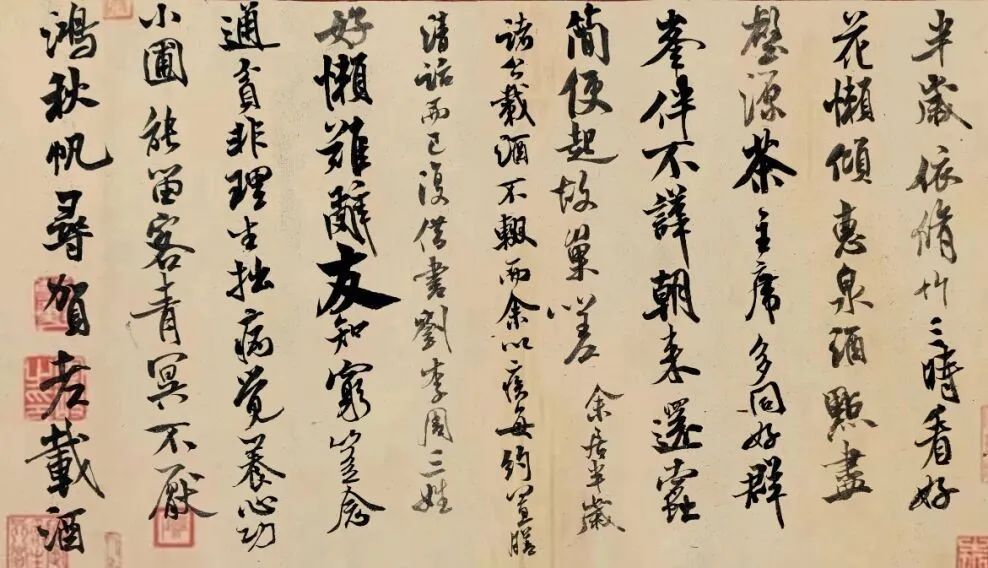 半歲依脩竹三時看好
花懶傾惠泉酒點盡
壑源茶主席多同好群
峯伴不譁朝來還蠹
簡便起故巢嗟 余居半歲
諸公載酒不輟而余以疾每約置膳
清話而已復借書劉李周三姓
好懶難辭友知窮豈念
通貧非理生拙病覺養心功
小圃能留客青冥不厭
鴻秋帆尋賀老載酒